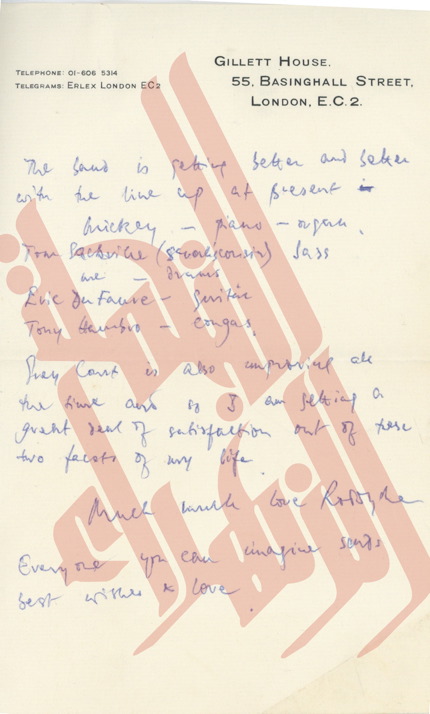 GILLETT HOUSE.
TELEPHONE: 01-606 5314
55, BASINGHALL STREET,
TELEGRAMS: ERLEX LONDON EC2
LONDON, E.C.2.
The band is getting better and better
with the line up at present
Mickey – piano – organ.
Tom Sackville (Seventh cousin) bass
me – drums
Eric Du Faure – guitar
Tony Hambro – congas.
Court is also improving all
the time and so I am getting a
great deal of satisfaction out of these
two facets of my life.
Much much love
Everyone you can imagine sends
best wishes & love.